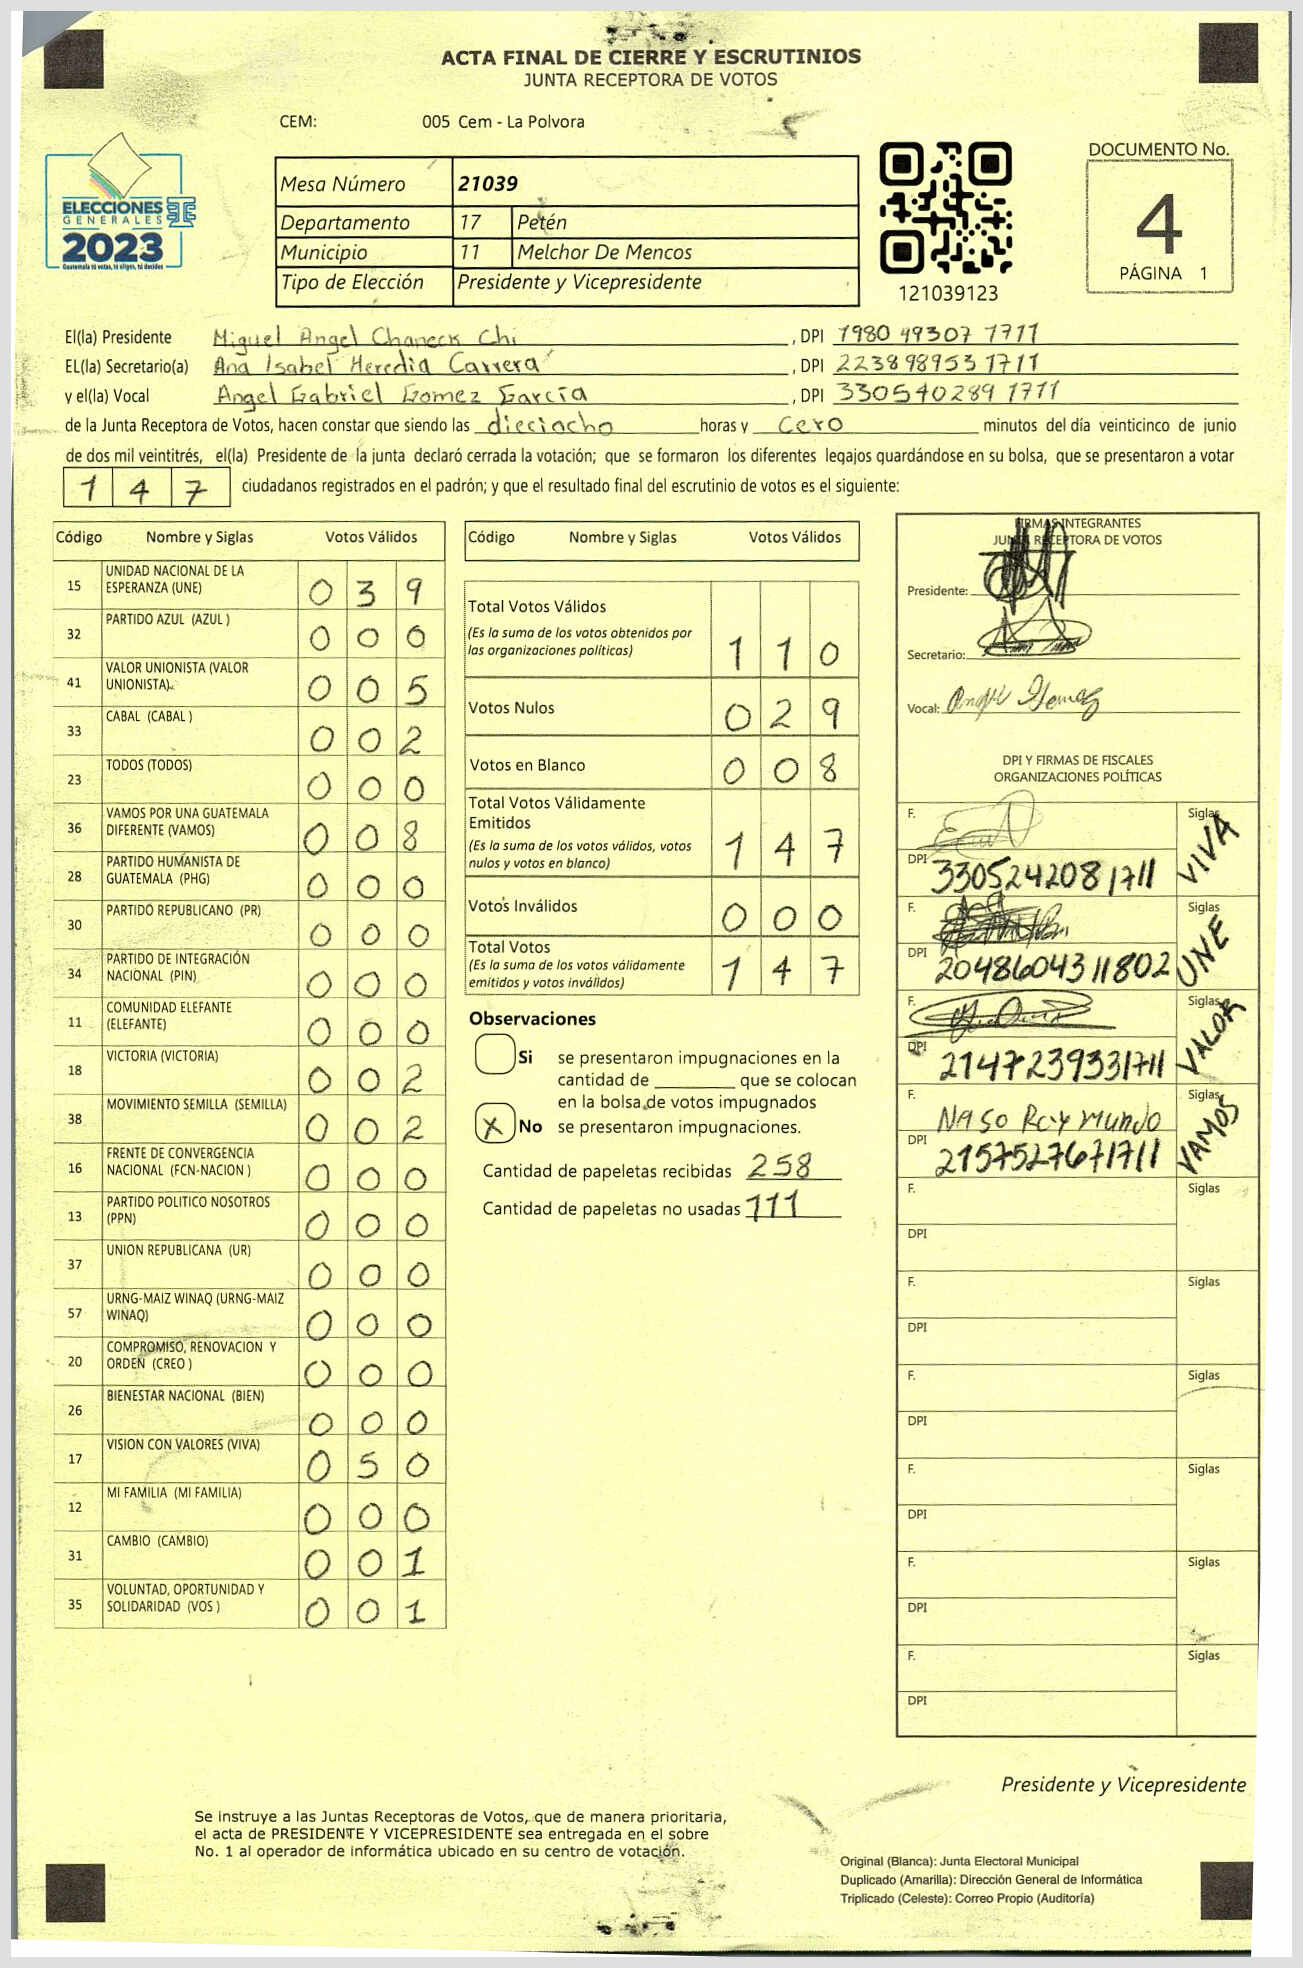 ACTA FINAL DE CIERRE Y ESCRUTINIOS
JUNTA RECEPTORA DE VOTOS
CEM: 005 Cem - La Polvora
DOCUMENTO No.
4
PÁGINA 1
ELECCIONES
GENERALES
TSE
2023
Guatemala tú votas, tú eliges, tú decides
Mesa Número 21039
Departamento 17 Petén
Municipio 11 Melchor De Mencos
Tipo de Elección Presidente y Vicepresidente
121039123
El(la) Presidente Miguel Angel Chaneck Chi, DPI 1980 49307 1711
EL(la) Secretario(a) Ana Isabel Heredia Carrera, DPI 223898953 1711
y el(la) Vocal Angel Gabriel Gomez García, DPI 330540289 1711
de la Junta Receptora de Votos, hacen constar que siendo las dieciocho horas y cero minutos del día veinticinco de junio
de dos mil veintitrés, el(la) Presidente de la junta declaró cerrada la votación; que se formaron los diferentes legajos quardándose en su bolsa, que se presentaron a votar
1 4 7 ciudadanos registrados en el padrón; y que el resultado final del escrutinio de votos es el siguiente:
Código Nombre y Siglas Votos Válidos
15 UNIDAD NACIONAL DE LA ESPERANZA (UNE) 0 3 9
32 PARTIDO AZUL (AZUL ) 0 0 0
41 VALOR UNIONISTA (VALOR UNIONISTA) 0 0 5
33 CABAL (CABAL ) 0 0 2
23 TODOS (TODOS) 0 0 0
36 VAMOS POR UNA GUATEMALA DIFERENTE (VAMOS) 0 0 8
28 PARTIDO HUMANISTA DE GUATEMALA (PHG) 0 0 0
30 PARTIDO REPUBLICANO (PR) 0 0 0
34 PARTIDO DE INTEGRACIÓN NACIONAL (PIN) 0 0 0
11 COMUNIDAD ELEFANTE (ELEFANTE) 0 0 0
18 VICTORIA (VICTORIA) 0 0 2
38 MOVIMIENTO SEMILLA (SEMILLA) 0 0 2
16 FRENTE DE CONVERGENCIA NACIONAL (FCN-NACION ) 0 0 0
13 PARTIDO POLITICO NOSOTROS (PPN) 0 0 0
37 UNION REPUBLICANA (UR) 0 0 0
57 URNG-MAIZ WINAQ (URNG-MAIZ WINAQ) 0 0 0
20 COMPROMISO, RENOVACION Y ORDEN (CREO ) 0 0 0
26 BIENESTAR NACIONAL (BIEN) 0 0 0
17 VISION CON VALORES (VIVA) 0 5 0
12 MI FAMILIA (MI FAMILIA) 0 0 0
31 CAMBIO (CAMBIO) 0 0 1
35 VOLUNTAD, OPORTUNIDAD Y SOLIDARIDAD (VOS ) 0 0 1
Código Nombre y Siglas Votos Válidos
Total Votos Válidos
(Es la suma de los votos obtenidos por
las organizaciones políticas) 1 1 0
Votos Nulos 0 2 9
Votos en Blanco 0 0 8
Total Votos Válidamente
Emitidos
(Es la suma de los votos válidos, votos
nulos y votos en blanco) 1 4 7
Votos Inválidos 0 0 0
Total Votos
(Es la suma de los votos válidamente
emitidos y votos inválidos) 1 4 7
Observaciones
Si se presentaron impugnaciones en la
cantidad de ________ que se colocan
en la bolsa de votos impugnados
X No se presentaron impugnaciones.
Cantidad de papeletas recibidas 258
Cantidad de papeletas no usadas 111
FIRMAS INTEGRANTES
JUNTA RECEPTORA DE VOTOS
Presidente:
Secretario:
Vocal: Angel Gomez
DPI Y FIRMAS DE FISCALES
ORGANIZACIONES POLÍTICAS
F. Siglas VIVA
DPI 330524208 1711
F. Siglas UNE
DPI 2048604311802
F. Siglas VALOR
DPI 2147239331711
F. Naso Raymundo Siglas VAMOS
DPI 2157527671711
F. Siglas
DPI
F. Siglas
DPI
F. Siglas
DPI
F. Siglas
DPI
F. Siglas
DPI
F. Siglas
DPI
Presidente y Vicepresidente
Se instruye a las Juntas Receptoras de Votos, que de manera prioritaria,
el acta de PRESIDENTE Y VICEPRESIDENTE sea entregada en el sobre
No. 1 al operador de informática ubicado en su centro de votación.
Original (Blanca): Junta Electoral Municipal
Duplicado (Amarilla): Dirección General de Informática
Triplicado (Celeste): Correo Propio (Auditoría)